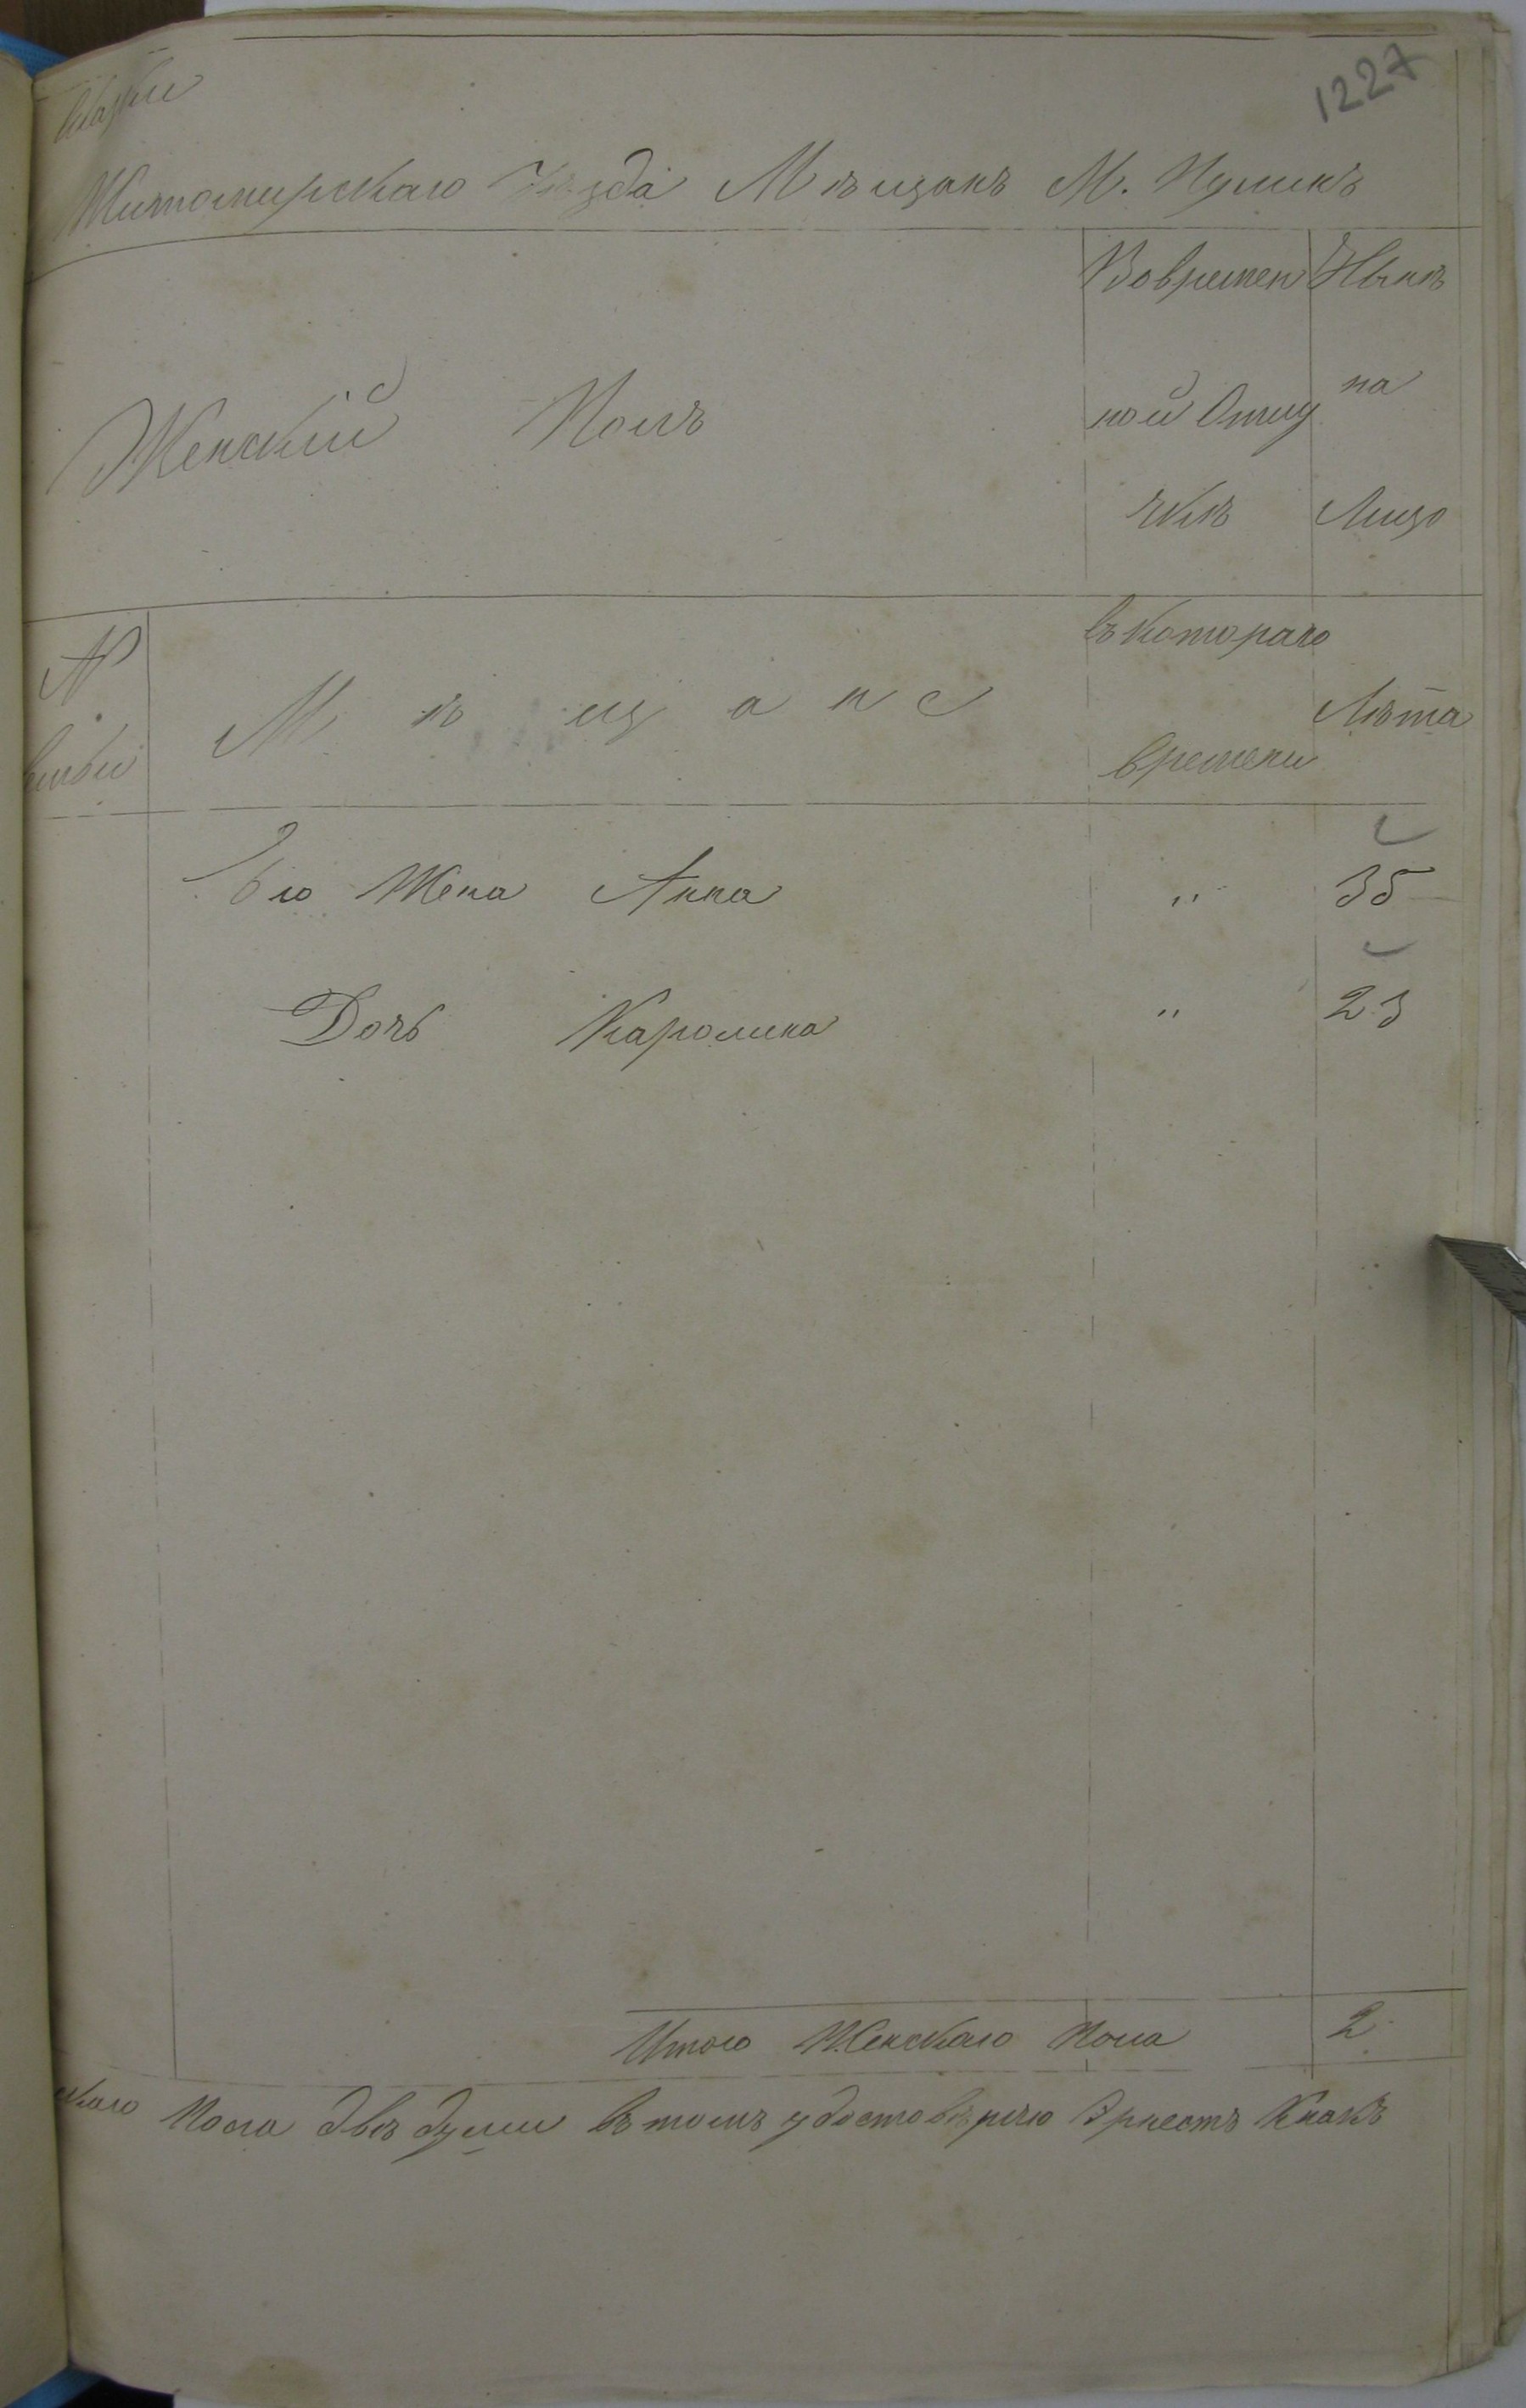 1227
Сказки
Житомирскаго Уѣзда Мѣщанъ М. Пулинъ
Женскій Полъ
Вовремен
ной Отлу
чкѣ
Нынѣ
на
Лицо
№
семьи
Мѣщане
съ котораго
времени
Лѣта
Его Жена Анна " 35
Дочь Каролина " 23
Итого Женскаго Пола 2
скаго Пола двѣ души въ томъ удостовѣряю Эрнестъ